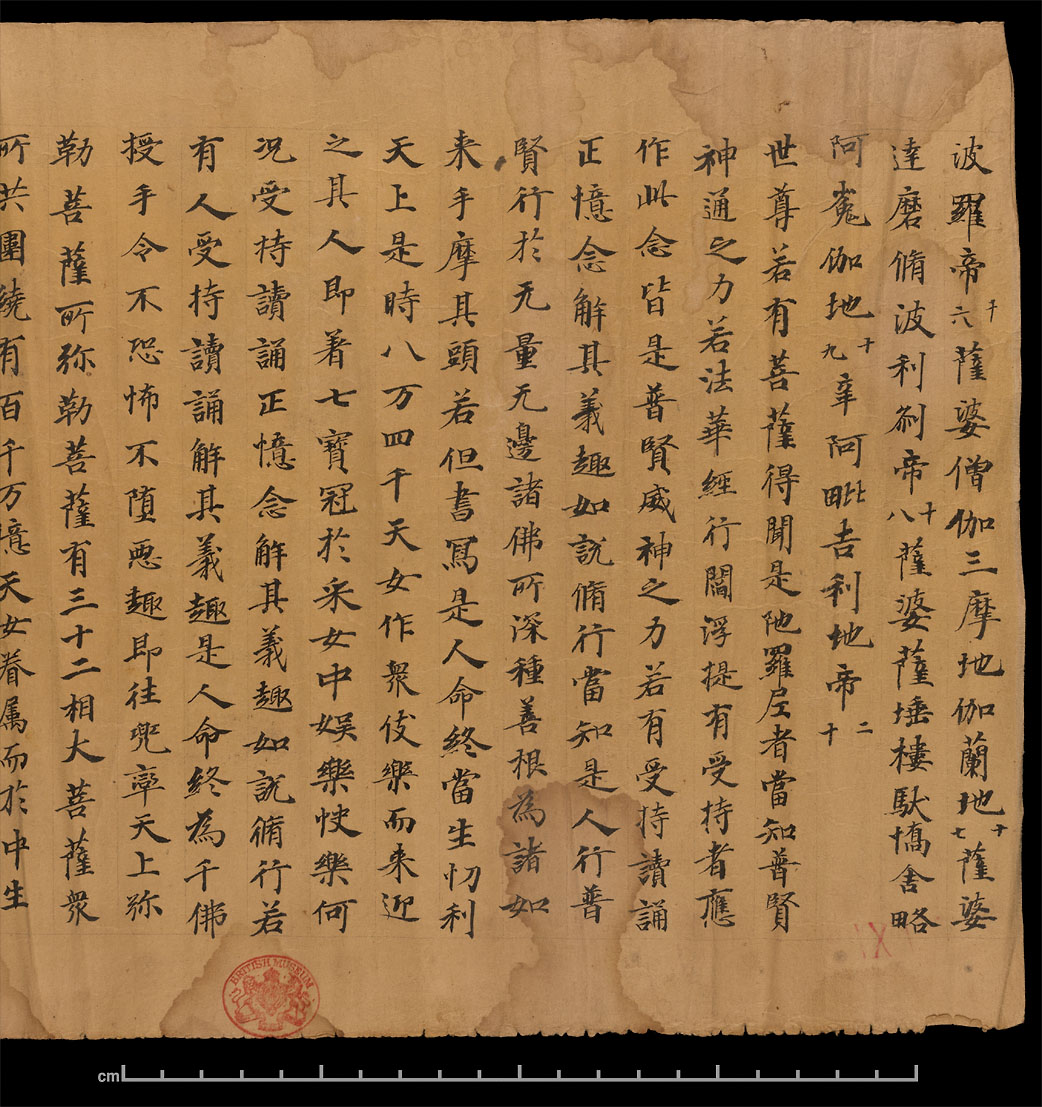 波羅帝十六薩婆僧伽三摩地伽蘭地十七薩婆
達磨脩波利剎帝十八薩婆薩埵樓馱憍舍略
阿㝹伽地十九辛阿毗吉利地帝二十
世尊若有菩薩得聞是陁羅尼者當知普賢
神通之力若法華經行閻浮提有受持者應
作此念皆是普賢威神之力若有受持讀誦
正憶念解其義趣如說脩行當知是人行普
賢行於无量无邊諸佛所深種善根為諸如
来手摩其頭若但書寫是人命終當生忉利
天上是時八万四千天女作衆伎樂而来迎
之其人即著七寶冠於采女中娛樂快樂何
况受持讀誦正憶念解其義趣如說脩行若
有人受持讀誦解其義趣是人命終為千佛
授手令不恐怖不墮惡趣即往兜率天上弥
勒菩薩所弥勒菩薩有三十二相大菩薩衆
所共圍繞有百千万億天女眷属而於中生
BRITISH MUSEUM
cm